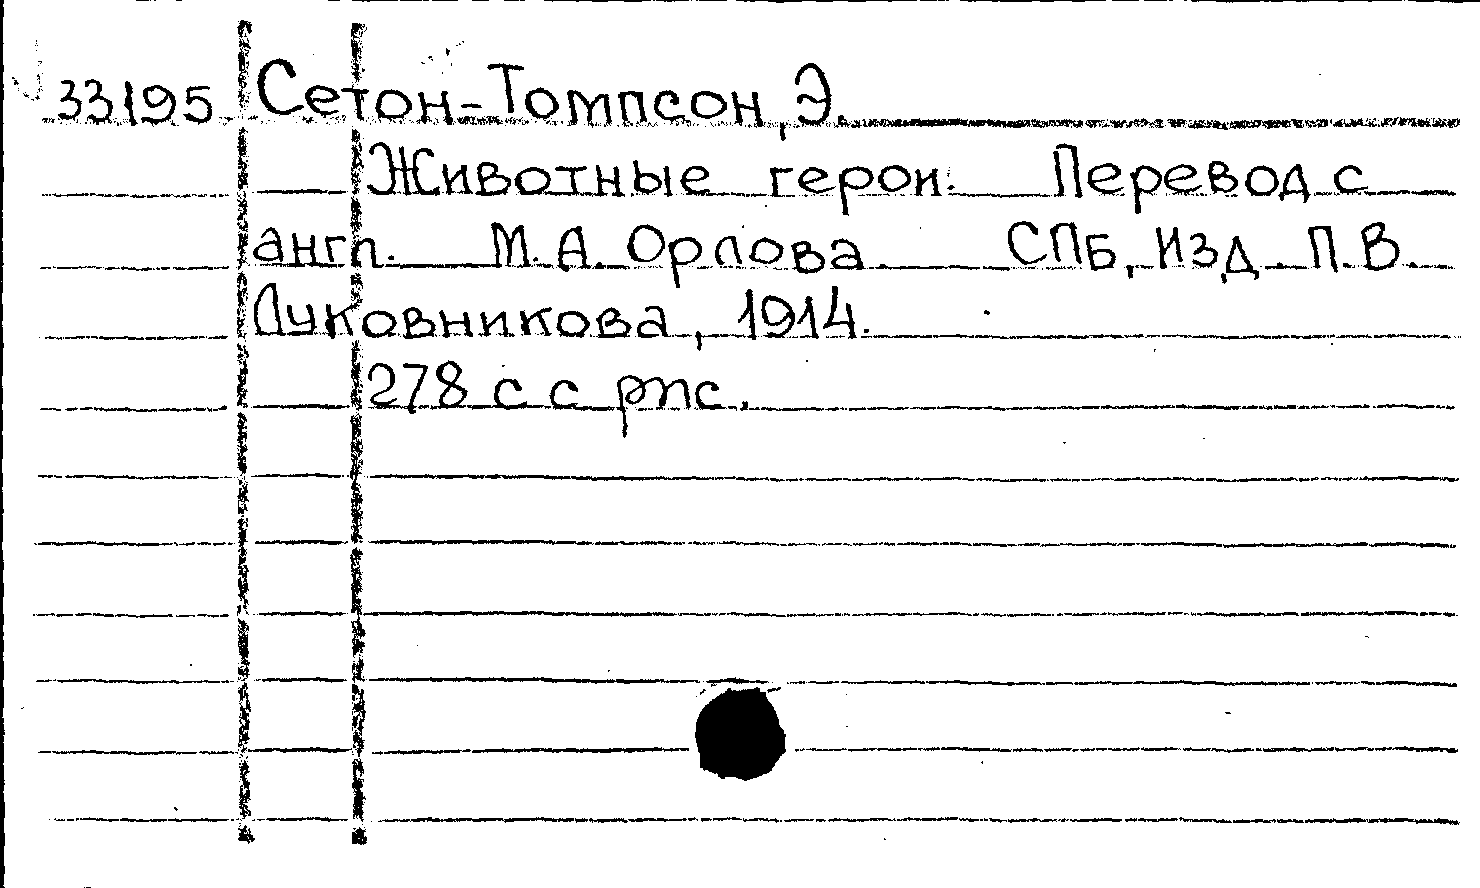 33195 Сетон-Томпсон, Э.
Животные герои. Перевод с
англ. М. А. Орлова. СПБ, Изд. П. В.
Луковникова, 1914.
278 с с рис.